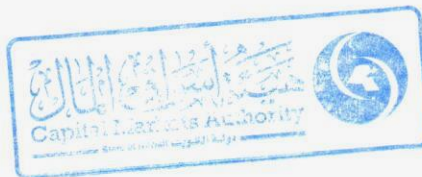 هيئة أسواق المال
Capital Markets Authority
دولة الكويت